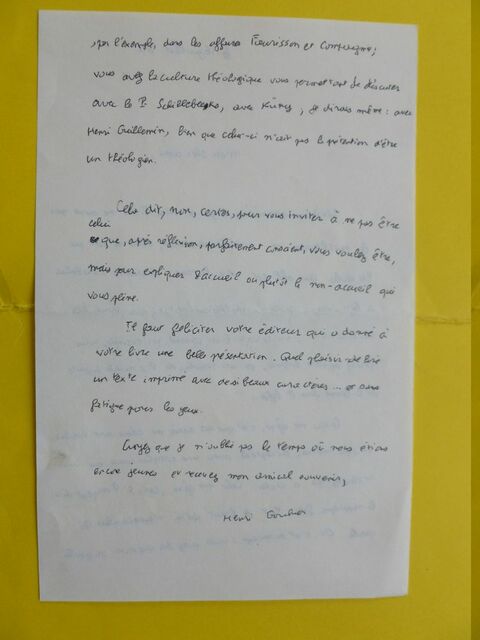 , par l'exemple, dans les affaires Faurisson et Compagnie ;
vous avez la culture théologique vous permettant de discuter
avec le P. Schillebeeckx, avec Küng, je dirais même : avec
Henri Guillemin, bien que celui-ci n'ait pas la prétention d'être
un théologien.
Cela dit, non, certes, pour vous inviter à ne pas être
celui
que, après réflexion, parfaitement conscient, vous voulez être,
mais pour expliquer l'accueil ou plutôt le non-accueil qui
vous peine.
Il faut féliciter votre éditeur qui a donné à
votre livre une belle présentation. Quel plaisir de lire
un texte imprimé avec de si beaux caractères ... et sans
fatigue pour les yeux.
Croyez que je n'oublie pas le temps où nous étions
encore jeunes et recevez mon amical souvenir,
Henri Gouhier